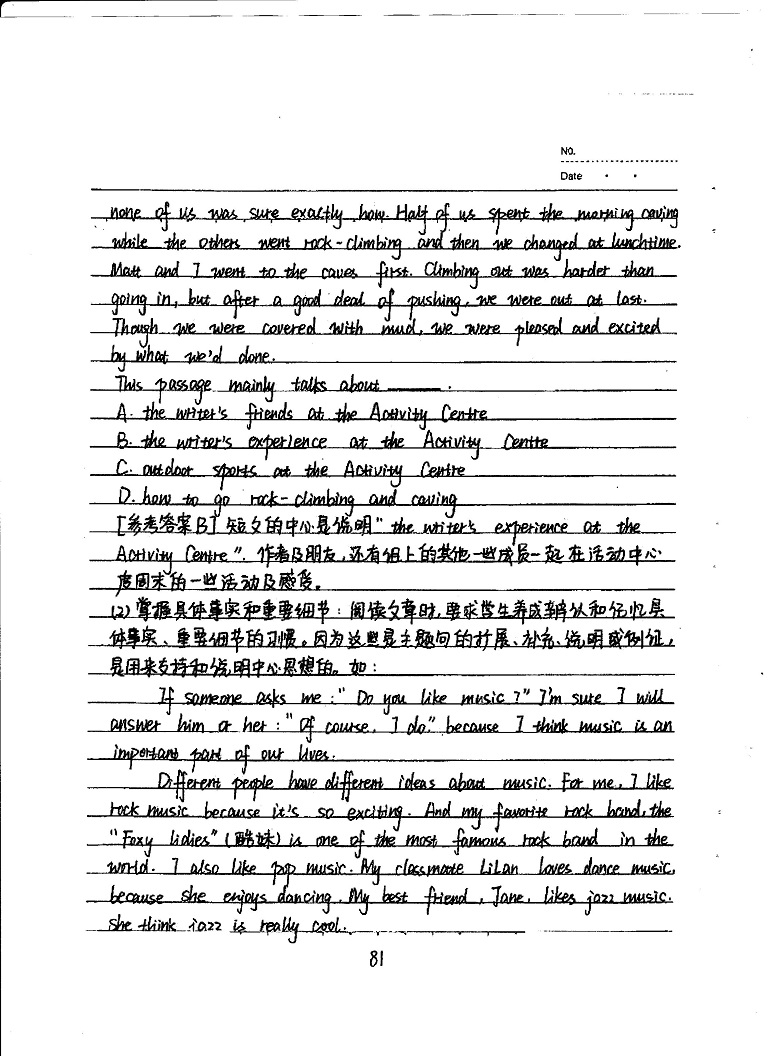 No.
Date
none of us was sure exactly how. Half of us spent the morning caving
while the others went rock-climbing and then we changed at lunchtime.
Matt and I went to the caves first. Climbing out was harder than
going in, but after a good deal of pushing, we were out at last.
Though we were covered with mud, we were pleased and excited
by what we'd done.
This passage mainly talks about ______.
A. the writer's friends at the Activity Centre
B. the writer's experience at the Activity Centre
C. outdoor sports at the Activity Centre
D. how to go rock-climbing and caving
[参考答案B] 短文的中心是说明"the writer's experience at the
Activity Centre". 作者及朋友,还有组上的其他一些成员一起在活动中心
度周末的一些活动及感受。
(2) 掌握具体事实和重要细节：阅读文章时,要求学生养成辨认和记忆具
体事实、重要细节的习惯。因为这些是主题句的扩展、补充、说明或例证,
是用来支持和说明中心思想的。如：
If someone asks me : "Do you like music ?" I'm sure I will
answer him or her : "Of course, I do." because I think music is an
important part of our lives.
Different people have different ideas about music. For me, I like
rock music because it's so exciting. And my favorite rock band, the
"Foxy lidies" (酷妹) is one of the most famous rock band in the
world. I also like pop music. My classmate LiLan loves dance music,
because she enjoys dancing. My best friend, Jane, likes jazz music.
She think jazz is really cool.
81